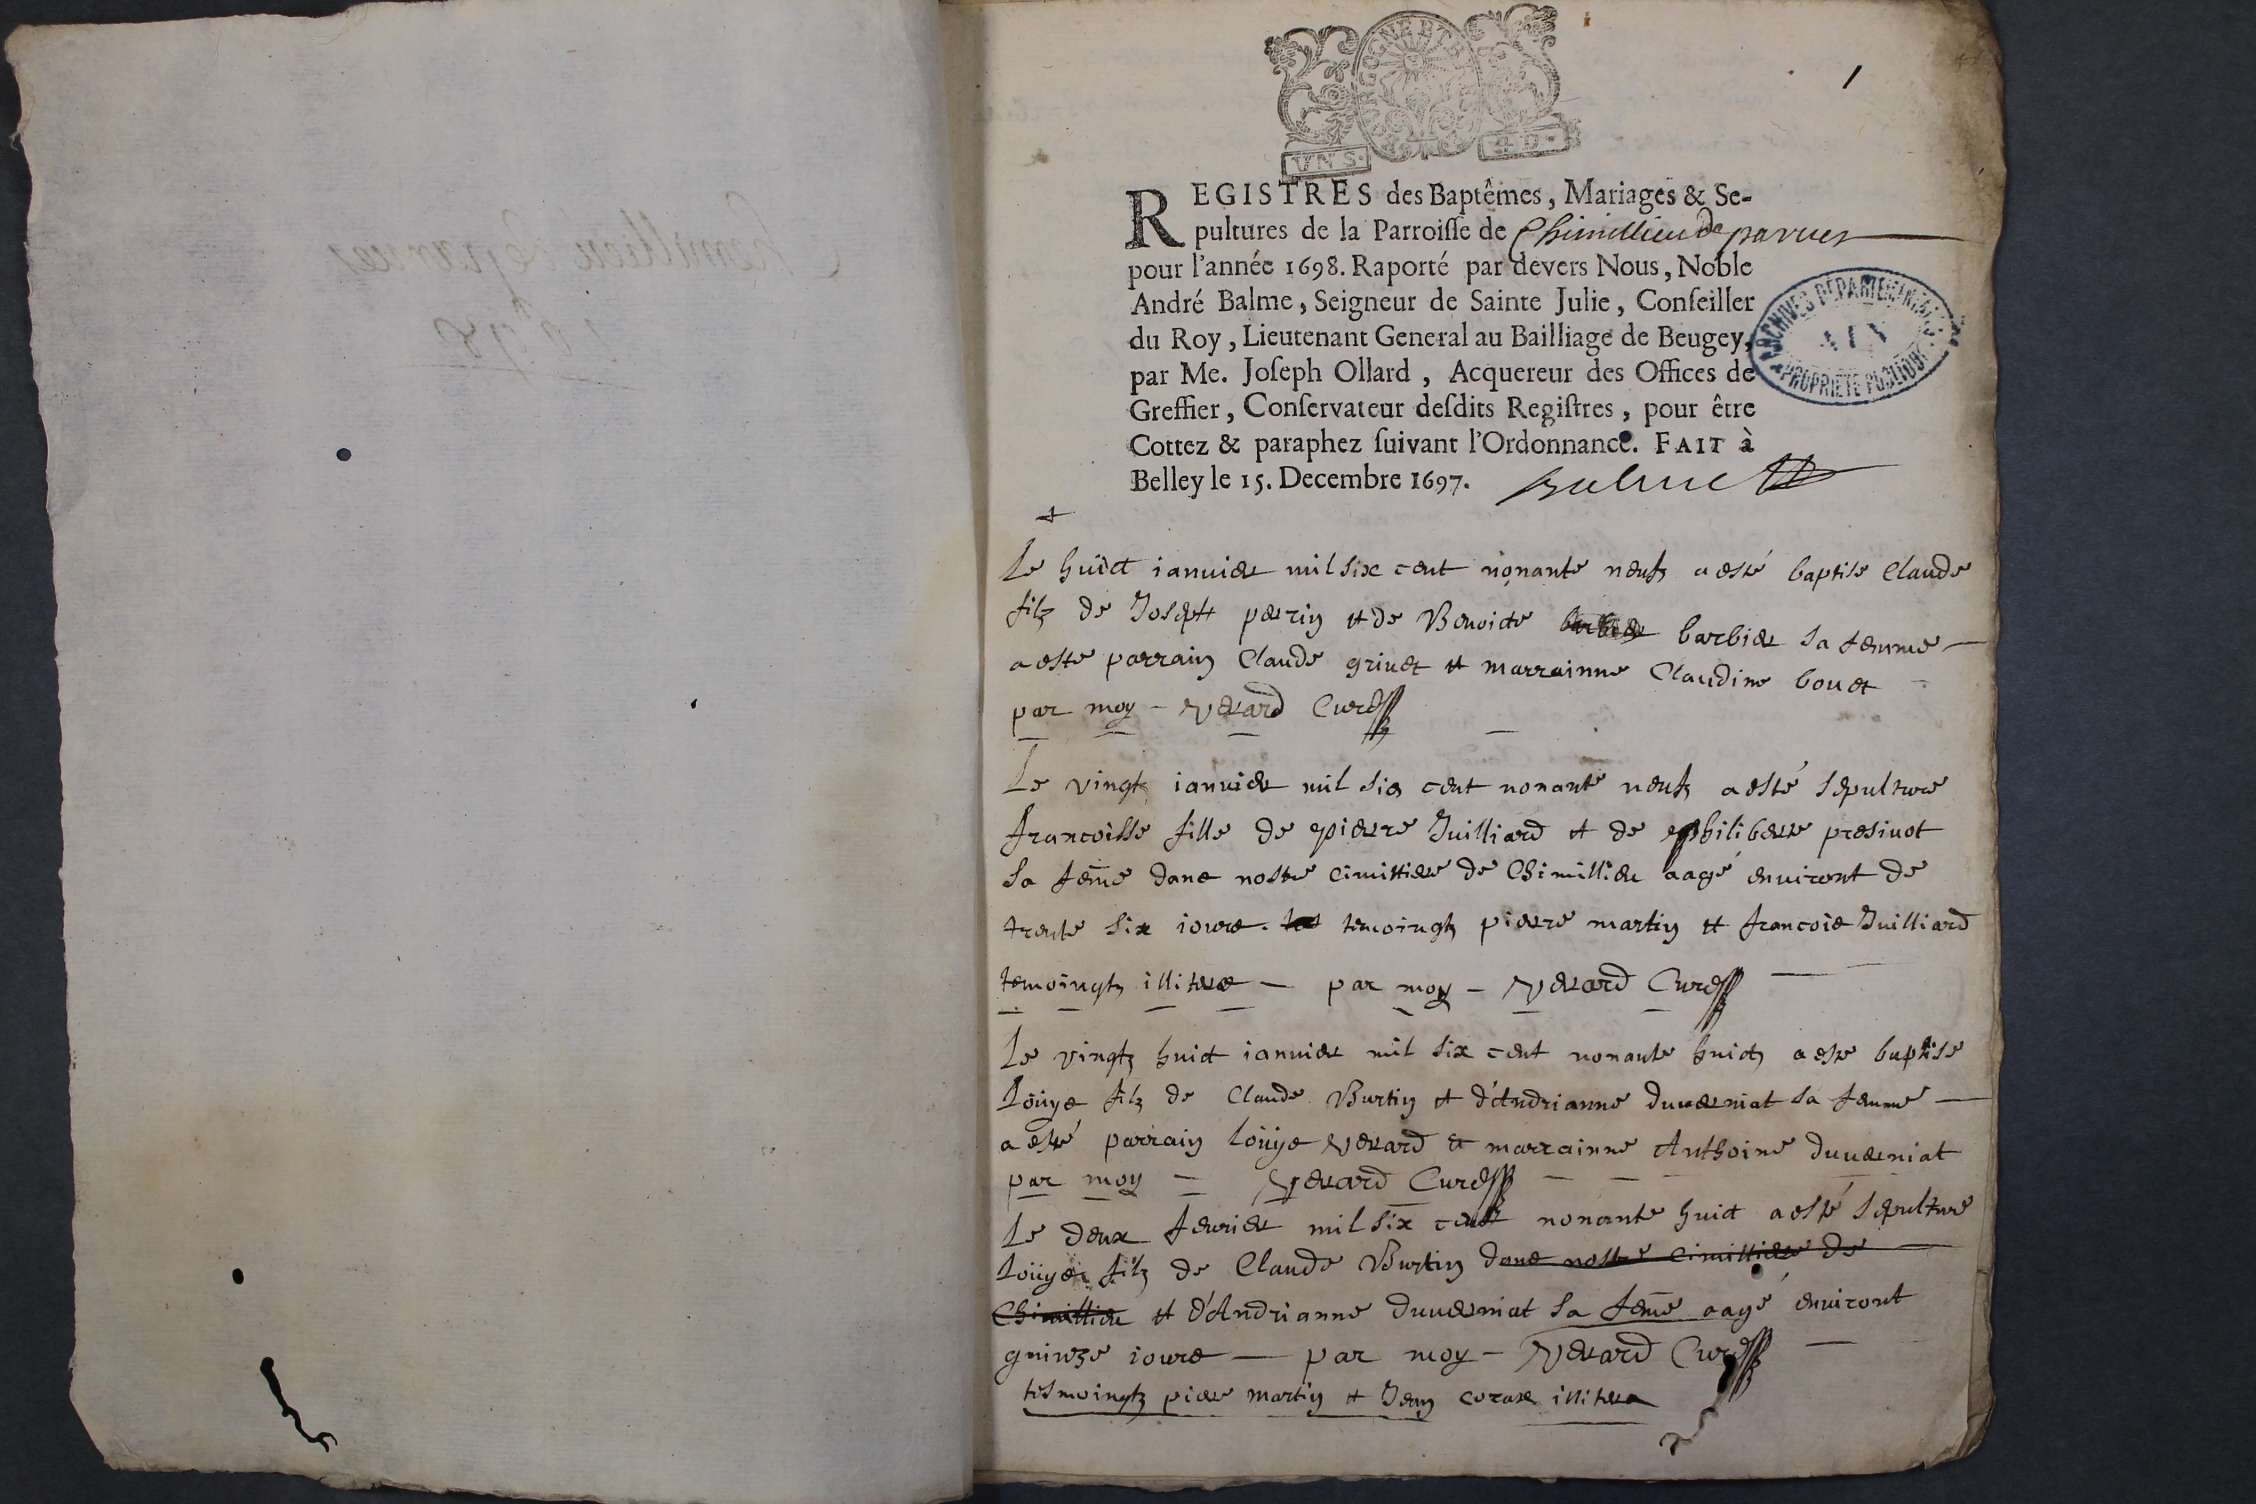 1
GNE ET B
VN S.
4 D.
REGISTRES des Baptêmes, Mariages & Se-
pultures de la Parroisse de Chimillieu de parves
pour l'année 1698. Raporté par devers Nous, Noble
André Balme, Seigneur de Sainte Julie, Conseiller
du Roy, Lieutenant General au Bailliage de Beugey,
par Me. Joseph Ollard, Acquereur des Offices de
Greffier, Conservateur desdits Registres, pour être
Cottez & paraphez suivant l'Ordonnance. FAIT à
Belley le 15. Decembre 1697. Balme
ARCHIVES DÉPARTEMENTALES
AIN
PROPRIÉTÉ PUBLIQUE
Le huict ianuier mil six cent nonante neufz a esté baptise Claude
filz de Joseph perrin et de Benoicte barbier barbier sa femme
a este parrain Claude griuet et marrainne Claudine bouet
par moy - Verard Curé
Le vingtz ianuier mil six cent nonante neufz a esté sepulture
francoisse fille de pierre Juilliard et de philiberte presiuot
sa feme dans nostre cimittiere de Chimillieu aagé enuiront de
trente six iours. temoingtz pierre martin et francois Juilliard
temoingtz illiteres - par moy - Verard Curé
Le vingtz huict ianuier mil six cent nonante huictz a este baptise
Loüys filz de Claude Burtin et d'Andrianne duuerniat sa femme
a esté parrain loüys Verard et marrainne Anthoine duuerniat
par moy - Verard Curé
Le deux feurier mil six cent nonante huict a esté sepulture
loüys filz de Claude Burtin dans nostre cimittiere de
Chimillieu et d'Andrianne duuerniat sa feme aagé enuiront
quinze iours - par moy - Verard Curé
tesmoingtz piere martin et Jean corax illiteres